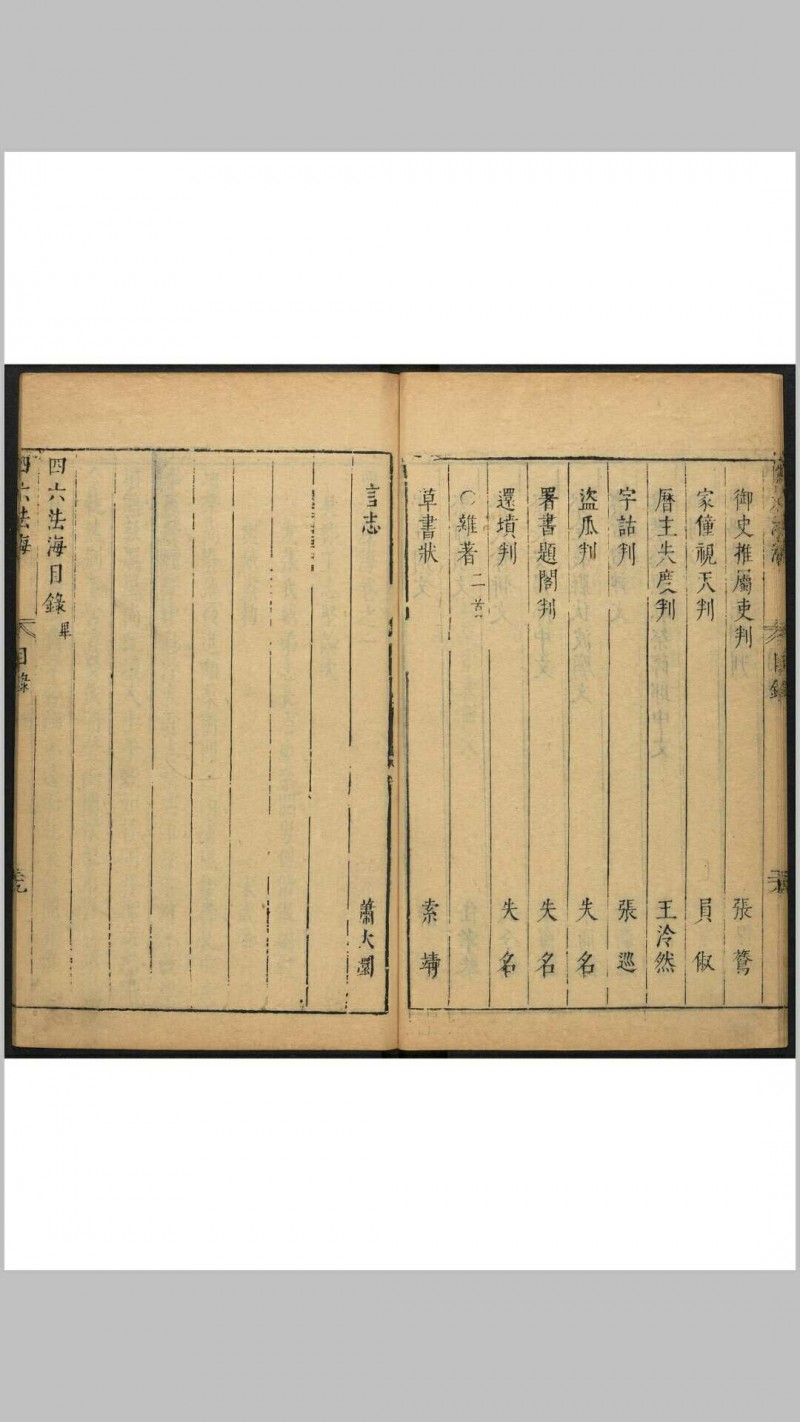 御史推屬吏判 張鷟
家僮視天判 員俶
曆生失度判 王泠然
字詁判 張巡
盜瓜判 失名
署書題閣判 失名
還墳判 失名
○雜著二首
草書狀 索靖
言志 蕭大圜
四六法海目錄畢
四六法海 目錄